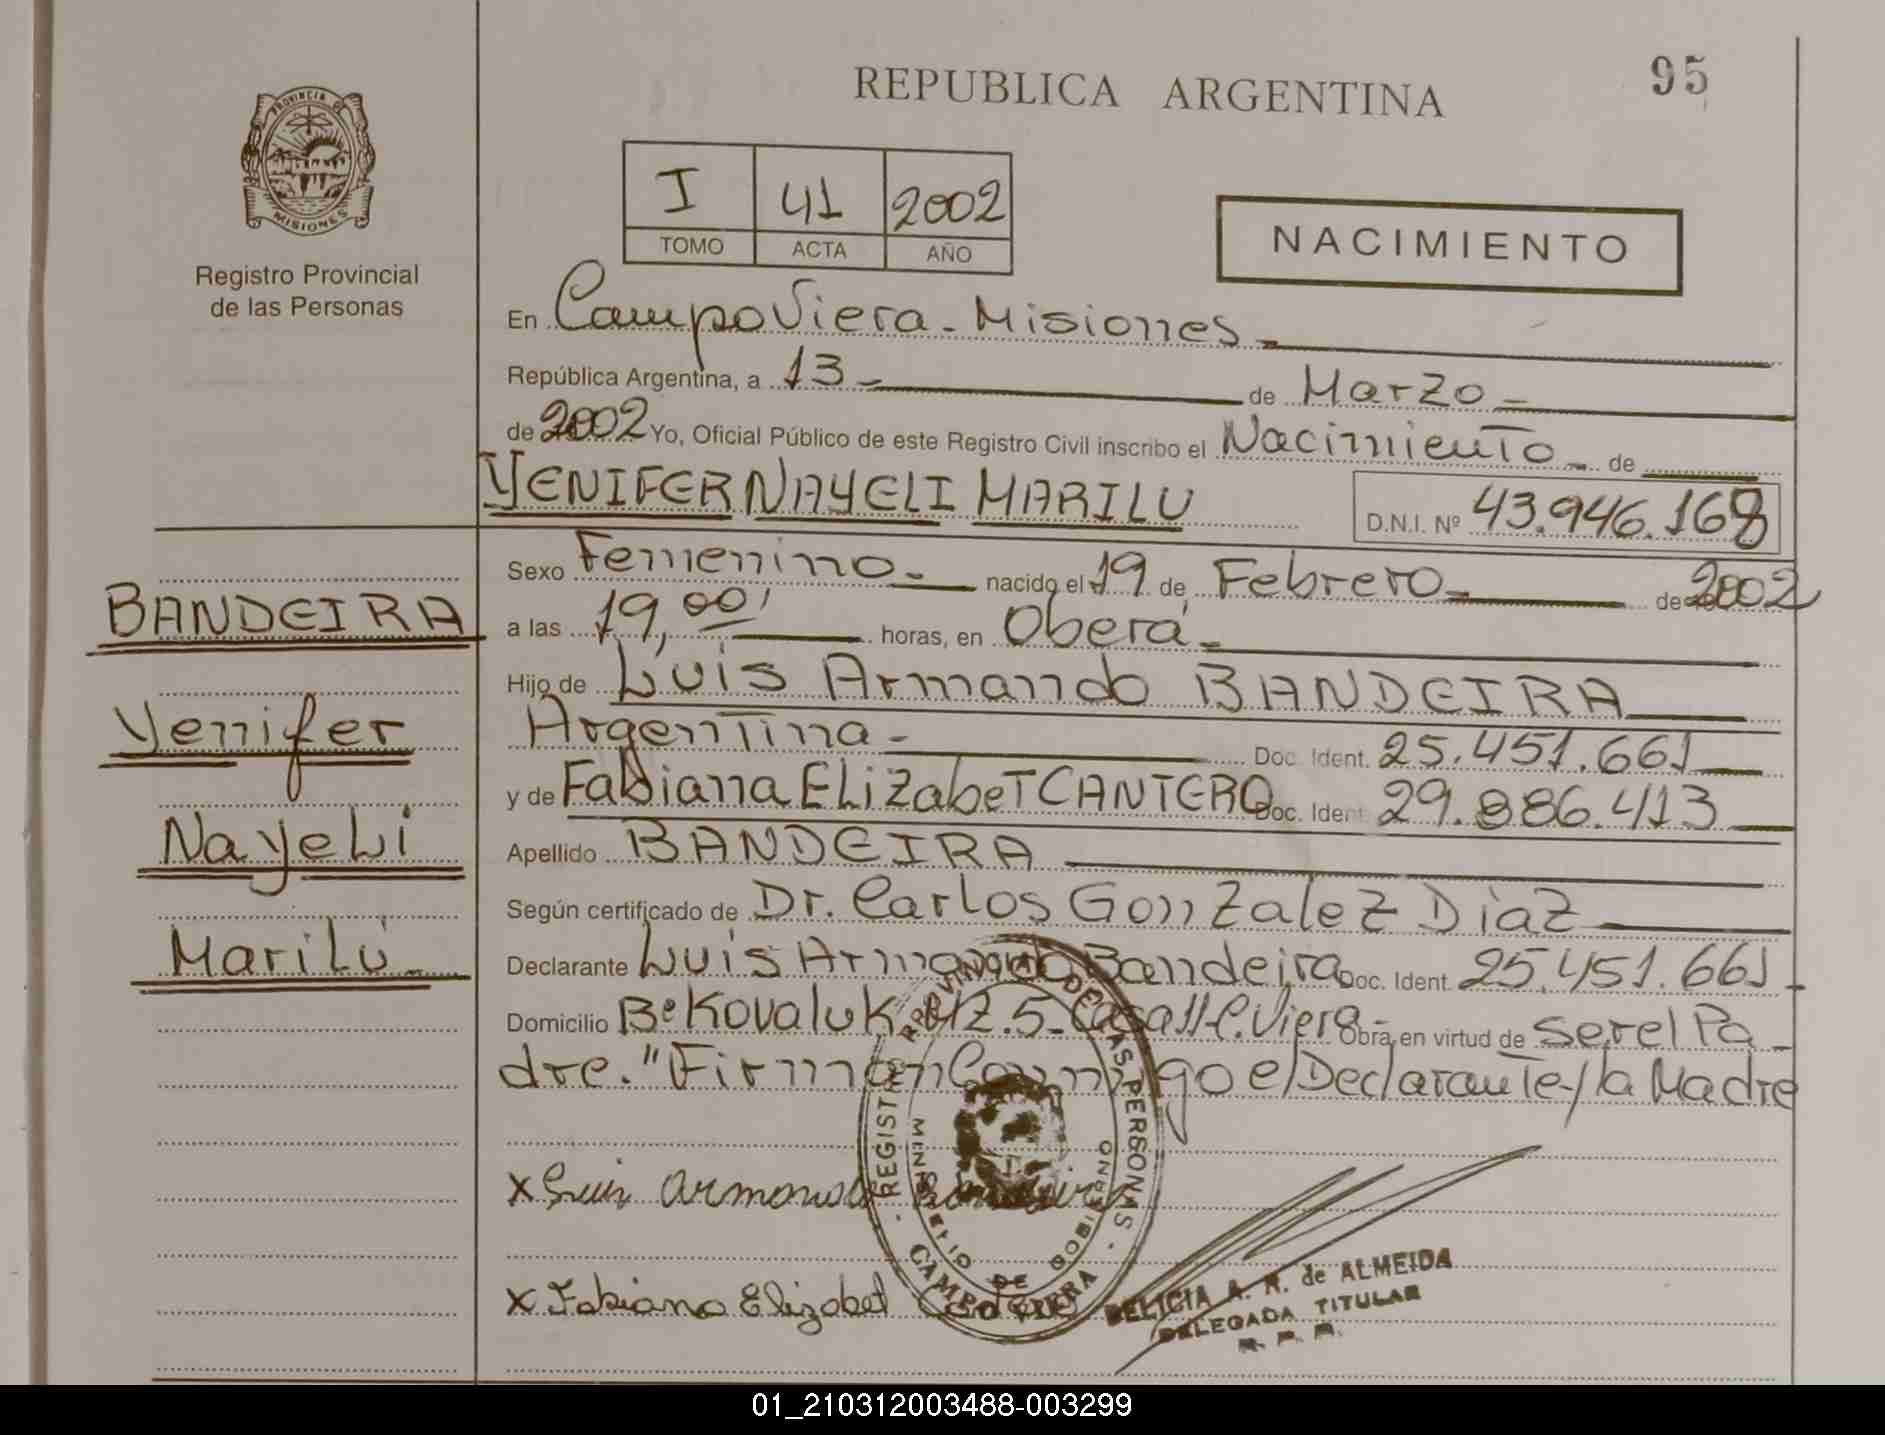 REPUBLICA ARGENTINA
95
PROVINCIA DE
MISIONES
Registro Provincial
de las Personas
I 41 2002
TOMO ACTA AÑO
NACIMIENTO
En Campo Viera - Misiones
República Argentina, a 13 de Marzo
de 2002 Yo, Oficial Público de este Registro Civil inscribo el Nacimiento de
YENIFER NAYELI MARILU D.N.I. Nº 43.946.168
Sexo Femenino nacido el 19 de Febrero de 2002
a las 19,00 horas, en Oberá
Hijo de Luis Armando BANDEIRA
Argentina Doc. Ident. 25.451.661
y de Fabiana ELizabeT CANTERO Doc. Ident 29.886.413
Apellido BANDEIRA
Según certificado de Dr. Carlos GonZaleZ DiaZ
Declarante Luis Armando Bandeira Doc. Ident. 25.451.661
Domicilio Bº Kovaluk MZ.5-Casa 11 C. Viera Obra en virtud de ser el Pa
dre. "Firman Conmigo el Declarante y la Madre
BANDEIRA
Yenifer
NayeLi
MariLú
x Luis Armando Bandeira
x Fabiana Elizabet Cantero
REGISTRO PROVINCIAL DE LAS PERSONAS
MINISTERIO DE GOBIERNO
CAMPO VIERA
DELICIA A. R. de ALMEIDA
DELEGADA TITULAR
R. P. P.
01_210312003488-003299